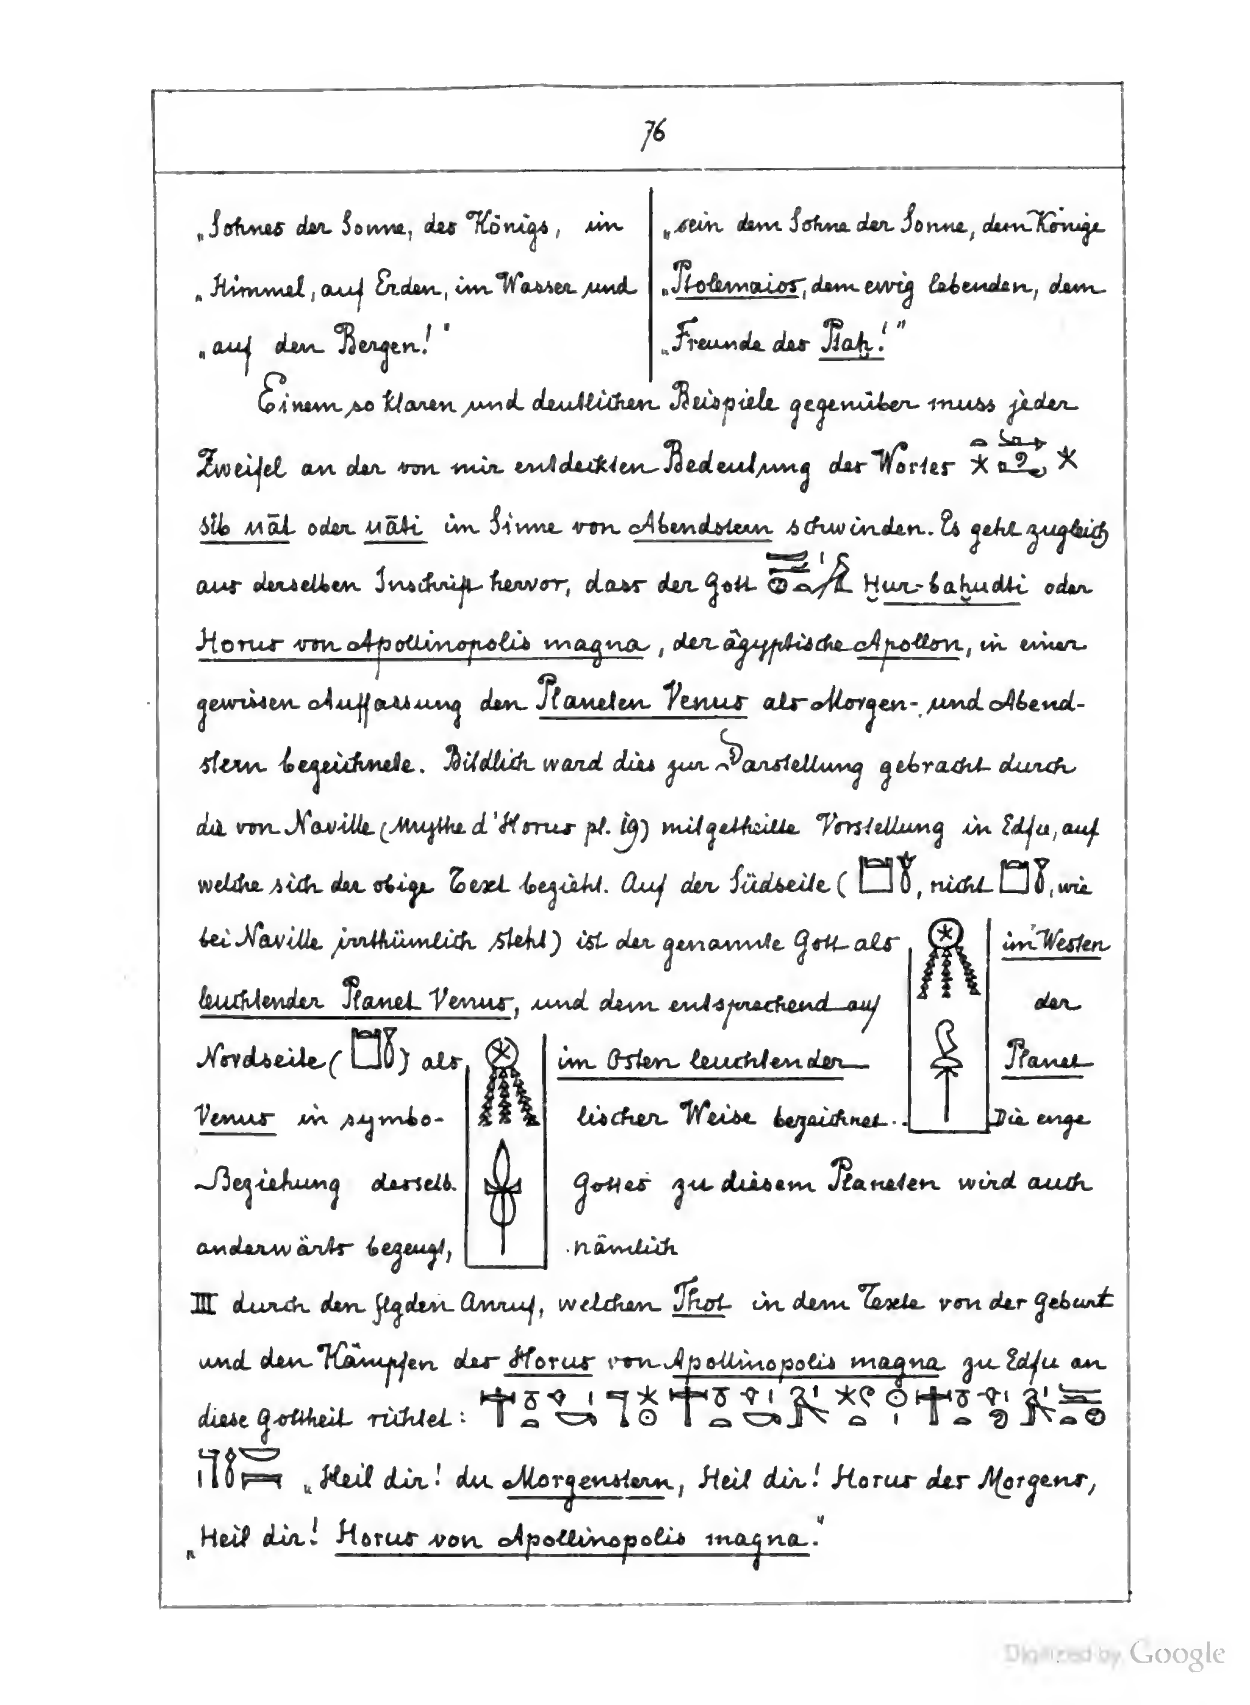 76
„Sohnes der Sonne, des Königs, im
„Himmel, auf Erden, im Wasser und
„auf den Bergen!"
„sein dem Sohne der Sonne, dem Könige
„Ptolemaios, dem ewig lebenden, dem
„Freunde des Ptaḥ!"
Einem so klaren und deutlichen Beispiele gegenüber muss jeder
Zweifel an der von mir entdeckten Bedeutung des Wortes
sib uāt oder uāti im Sinne von Abendstern schwinden. Es geht zugleich
aus derselben Inschrift hervor, dass der Gott Ḥur-baḥudti oder
Horus von Apollinopolis magna, der ägyptische Apollon, in einer
gewissen Auffassung den Planeten Venus als Morgen- und Abend-
stern bezeichnete. Bildlich ward dies zur Darstellung gebracht durch
die von Naville (Mythe d'Horus pl. 19) mitgetheilte Vorstellung in Edfu, auf
welche sich der obige Text bezieht. Auf der Südseite ( , nicht , wie
bei Naville irrthümlich steht) ist der genannte Gott als im Westen
leuchtender Planet Venus, und dem entsprechend auf der
Nordseite ( ) als im Osten leuchtender Planet
Venus in symbo- lischer Weise bezeichnet. Die enge
Beziehung desselb. Gottes zu diesem Planeten wird auch
anderwärts bezeugt, nämlich
III durch den flgden Anruf, welchen Thot in dem Texte von der Geburt
und den Kämpfen des Horus von Apollinopolis magna zu Edfu an
diese Gottheit richtet:
„Heil dir! du Morgenstern, Heil dir! Horus des Morgens,
„Heil dir! Horus von Apollinopolis magna."
Digitized by Google